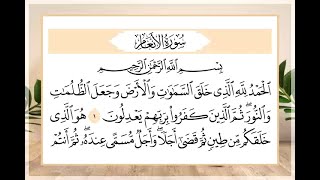 سُورَةُ الأَنعَامِ
بِسْمِ اللَّهِ الرَّحْمَٰنِ الرَّحِيمِ
الْحَمْدُ لِلَّهِ الَّذِي خَلَقَ السَّمَٰوَٰتِ وَالْأَرْضَ وَجَعَلَ الظُّلُمَٰتِ
وَالنُّورَ ۖ ثُمَّ الَّذِينَ كَفَرُوا بِرَبِّهِمْ يَعْدِلُونَ ١ هُوَ الَّذِي
خَلَقَكُم مِّن طِينٍ ثُمَّ قَضَىٰ أَجَلًا ۖ وَأَجَلٌ مُّسَمًّى عِندَهُ ۖ ثُمَّ أَنتُمْ